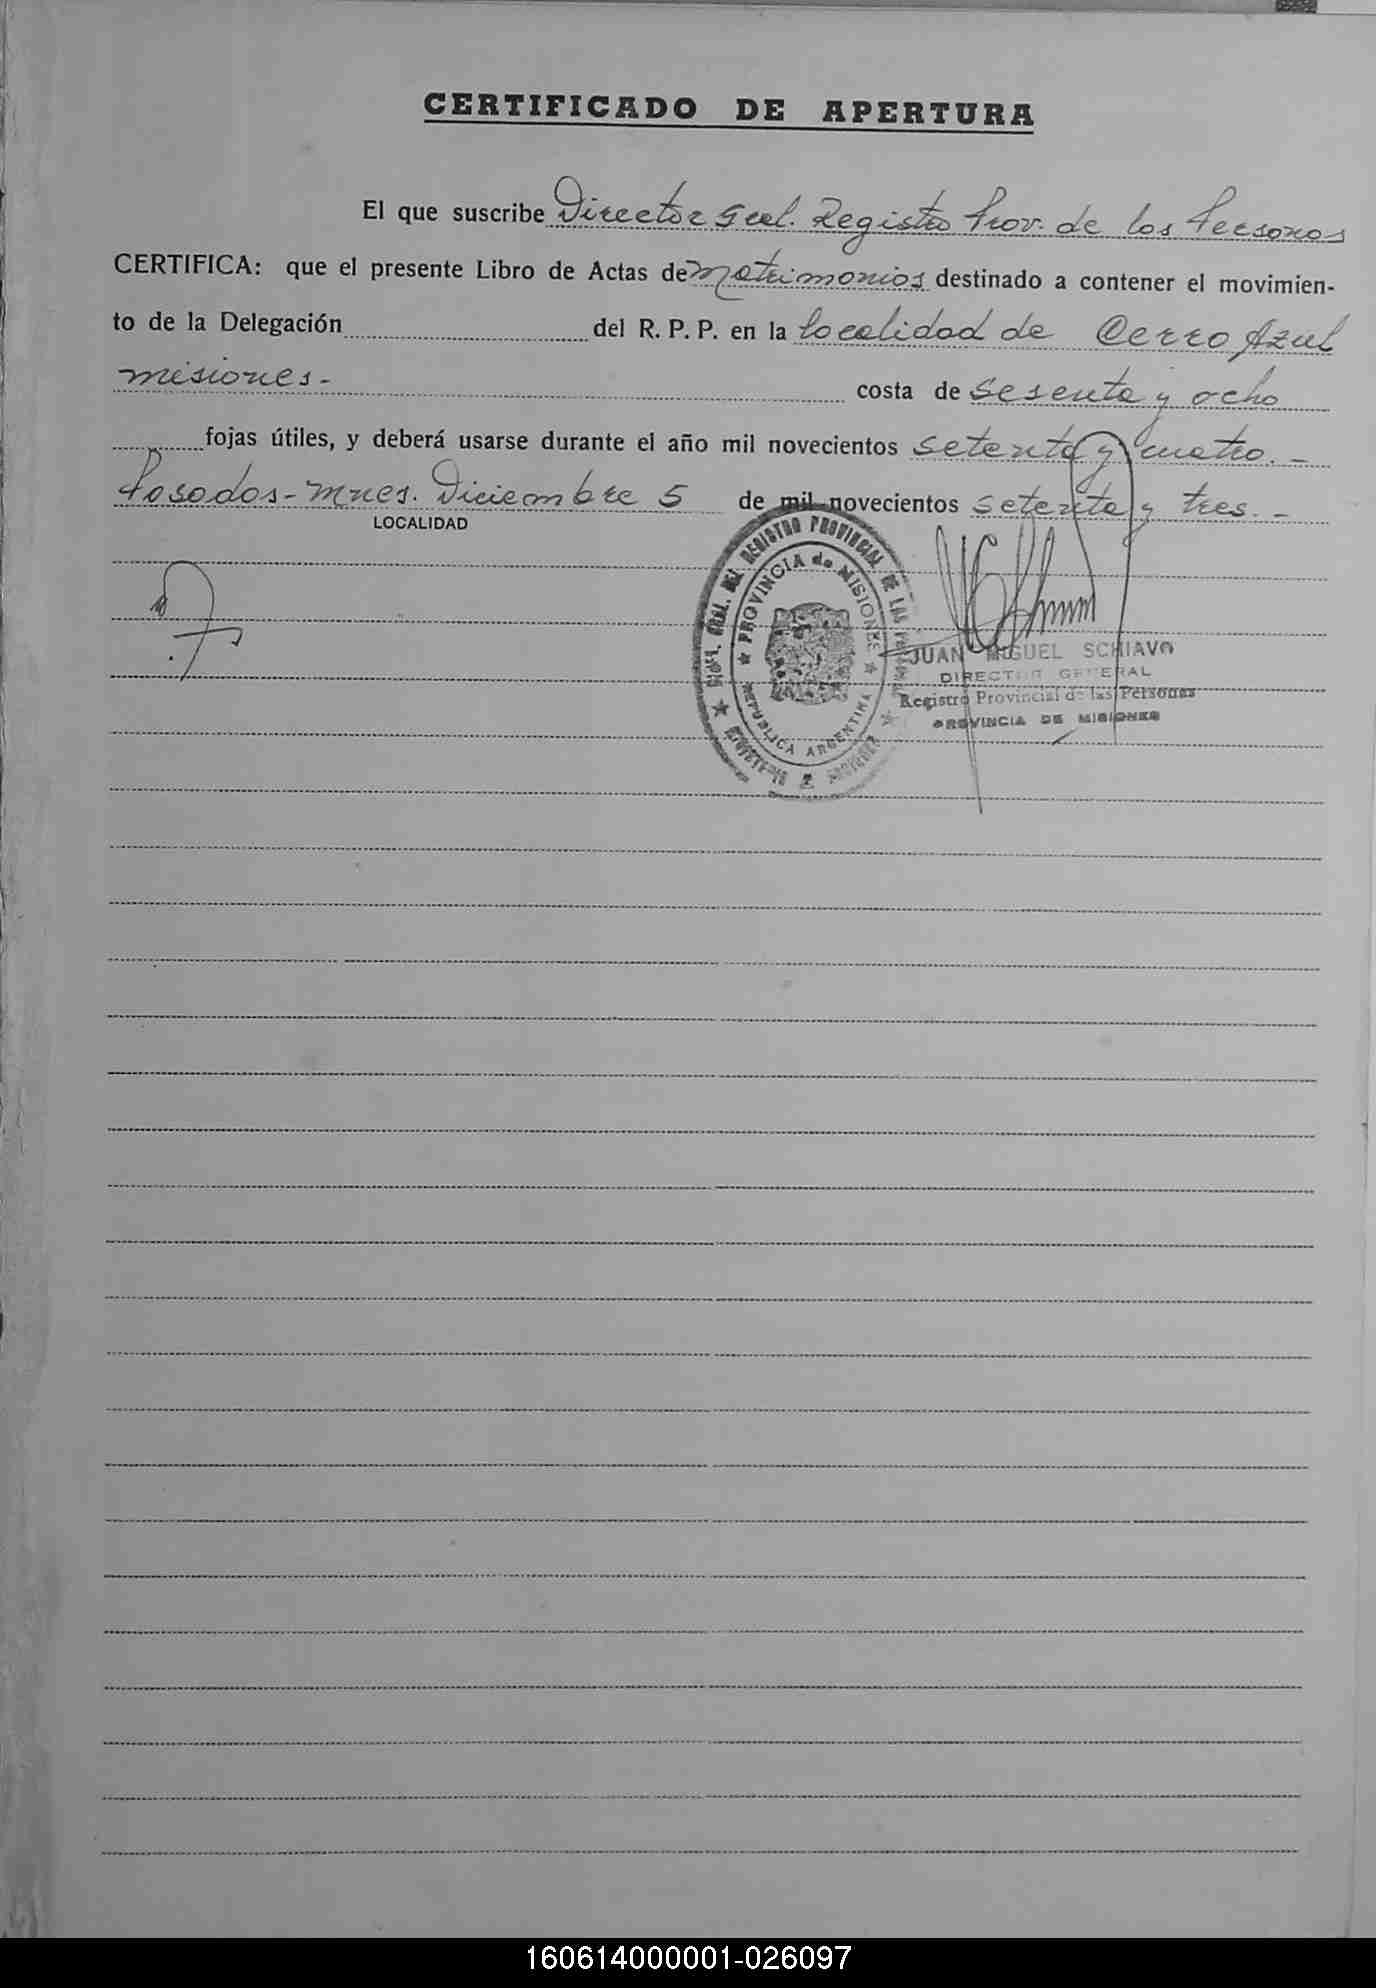 CERTIFICADO DE APERTURA
El que suscribe Director Gral. Registro Prov. de las Personas
CERTIFICA: que el presente Libro de Actas de Matrimonios destinado a contener el movimien-
to de la Delegación del R. P. P. en la localidad de Cerro Azul
misiones.- costa de sesenta y ocho
fojas útiles, y deberá usarse durante el año mil novecientos setenta y cuatro.-
Posadas-Mnes. Diciembre 5 de mil novecientos setenta y tres.-
LOCALIDAD
GRAL. DEL REGISTRO PROVINCIAL DE LAS
PROVINCIA de MISIONES
REPUBLICA ARGENTINA
JUAN MIGUEL SCHIAVO
DIRECTOR GENERAL
Registro Provincial de las Personas
PROVINCIA DE MISIONES
160614000001-026097